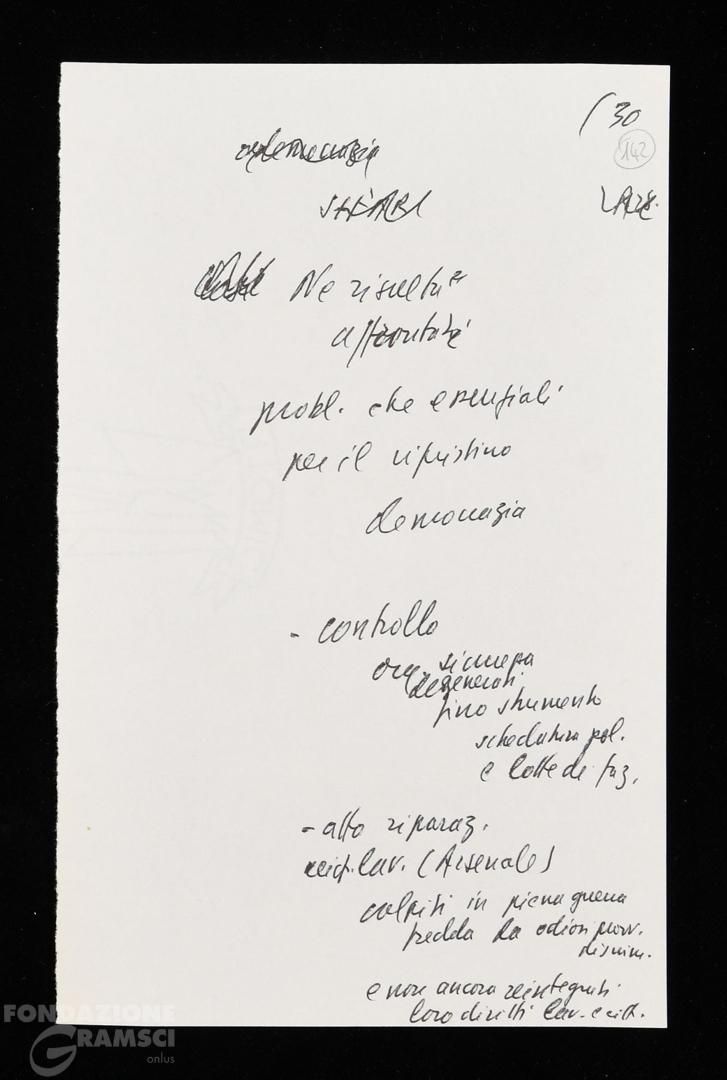 / 30
142
democrazia
Ne risulta
affrontare
probl. che essenziali
per il ripristino
democrazia
- controllo
org. sicurezza
degenerati
fino strumento
schedatura pol.
e lotte di faz.
- atto riparaz.
lav. (Arsenale)
colpiti in piena guerra
fredda da odiosi provv.
discrim.
e non ancora reintegrati
loro diritti lav. e citt.
FONDAZIONE
GRAMSCI
onlus